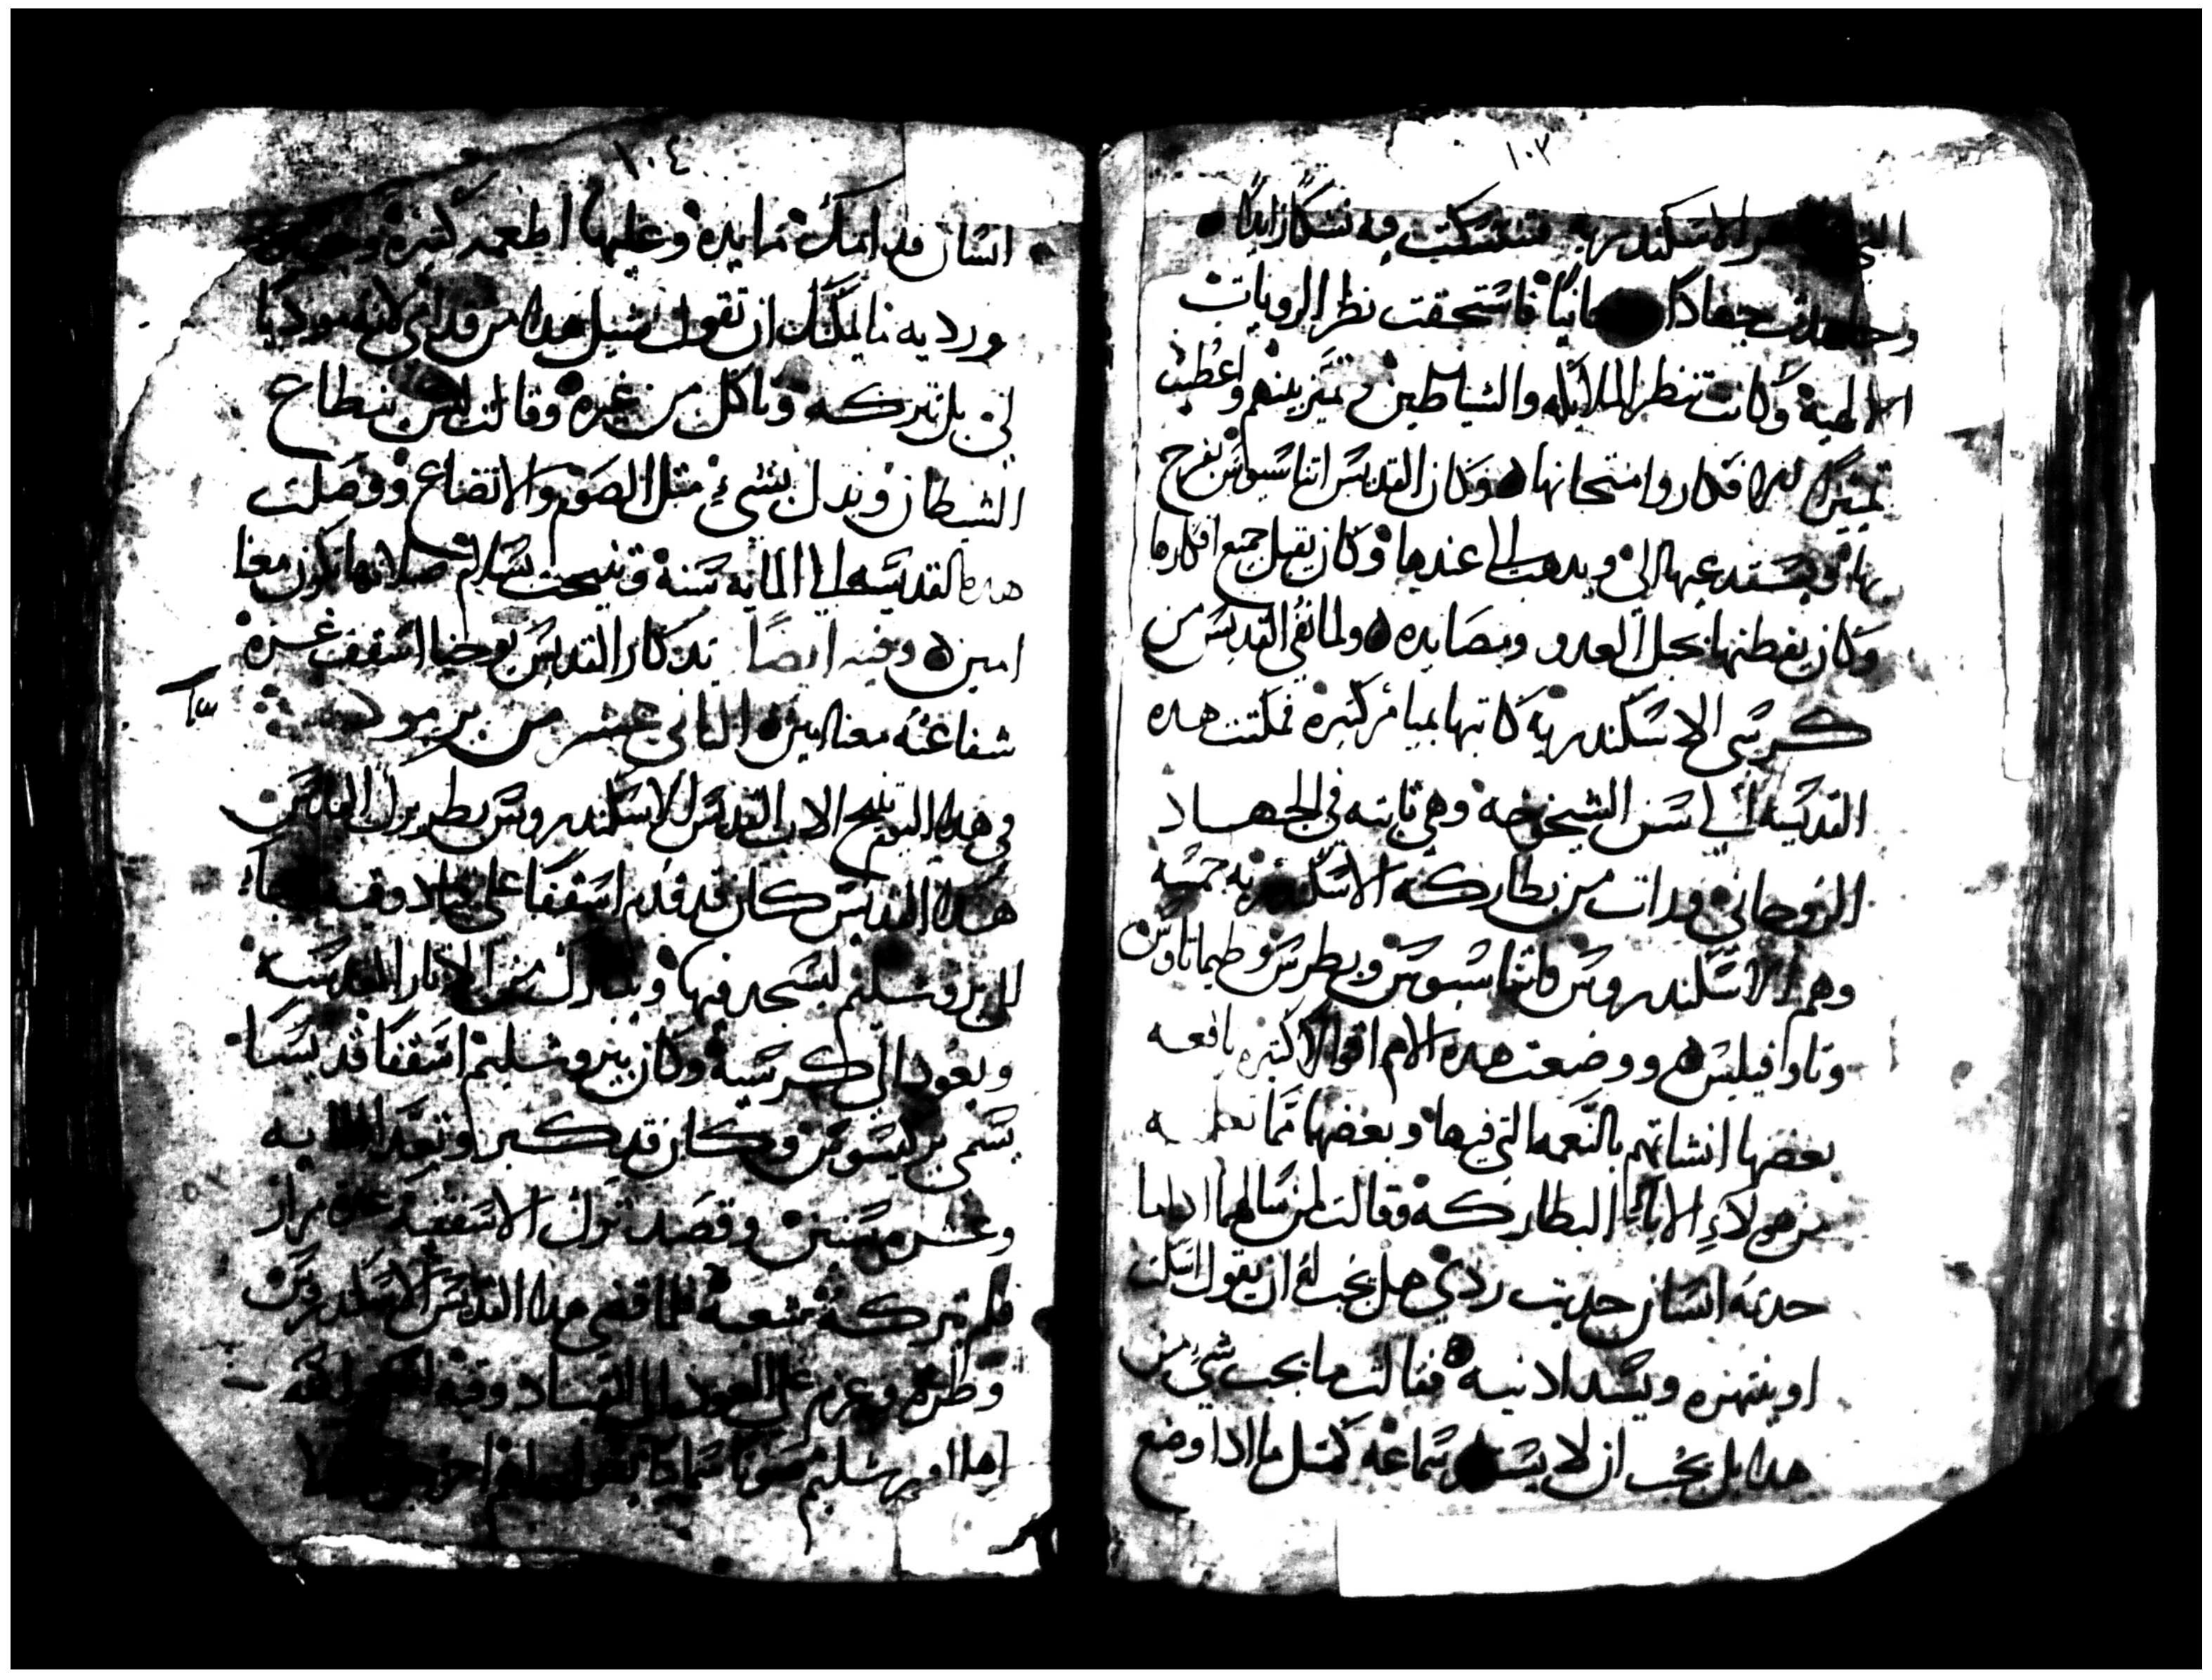 ١٠٣
الاسكندريه فتنسكت فيه نسكا زايدا
وجاهدت جهادا فاستحقت نظر الرويات
الالهيه وكانت تنظر الملايكه والشياطين وتميز بينهم واعطيت
تمييز الافكار وامتحانها وكان القديس اتناسيوس يفرح
بها ويستدعيها اليه ويدهب الى عندها وكان يقبل جميع افكارها
وكان يفطنها بحيل العدو ومصايده ولما نفي القديس من
كرسي الاسكندريه كاتبها بميامر كتيره فمكتت هده
القديسه الى سن الشيخوخه وهي تابته في الجهاد
الروحاني وراات من بطاركة الاسكندريه خمسه
وهم الاسكندروس واتناسيوس وبطرس وطيماتاوس
وتاوافيلس ووضعت هده الام اقوالا كتيره نافعه
بعضها انشاتهم بالنعمه التي فيها وبعضها مما
من هولاء الاباء البطاركه فقالت لمن سالها ادا ما
حدته انسان حديت ردي هل يجب له ان يقول اسكت
او ينتهره ويسد ادنيه فقالت ما يجب شي من
هدا بل يجب ان لا سماعه كمتل ما ادا وضع
١٠٤
انسان قدامك مايده وعليها اطعمه كتيره
ورديه ما يمكنك ان تقول شيل هدا من قدامي لانه موديا
لي بل تتركه وتاكل من غيره وقالت ليس يتطاع
الشيطان ويدل بشيء متل الصوم والاتضاع ووصلت
هده القديسه الى المايه سنه وتنيحت بسلام صلاتها تكون معنا
امين وفيه ايضا تدكار القديس يوحنا اسقف غزه
شفاعته معنا امين التاني عشر من برموده
في هدا اليوم تنيح الاب القديس الاسكندروس بطريرك القدس
هدا القديس كان قد قدم اسقفا على وقته جاء
الى يروشليم ليسجد فيها ويتبارك من الاتار المقدسه
ويعود الى كرسيه وكان بيروشليم اسقفا قديسا
يسمى بركيسوس وكان قد كبر وتعدا المايه
وعشر سنين وقصد ترك الاسقفيه عدة مرار
فلم تتركه شعبه فلما قضى هدا القديس الاسكندروس
وطره وعزم على العوده الى القباد وفيه
اهل اورشليم صوتا سمايا يقول لهم اخرجوا